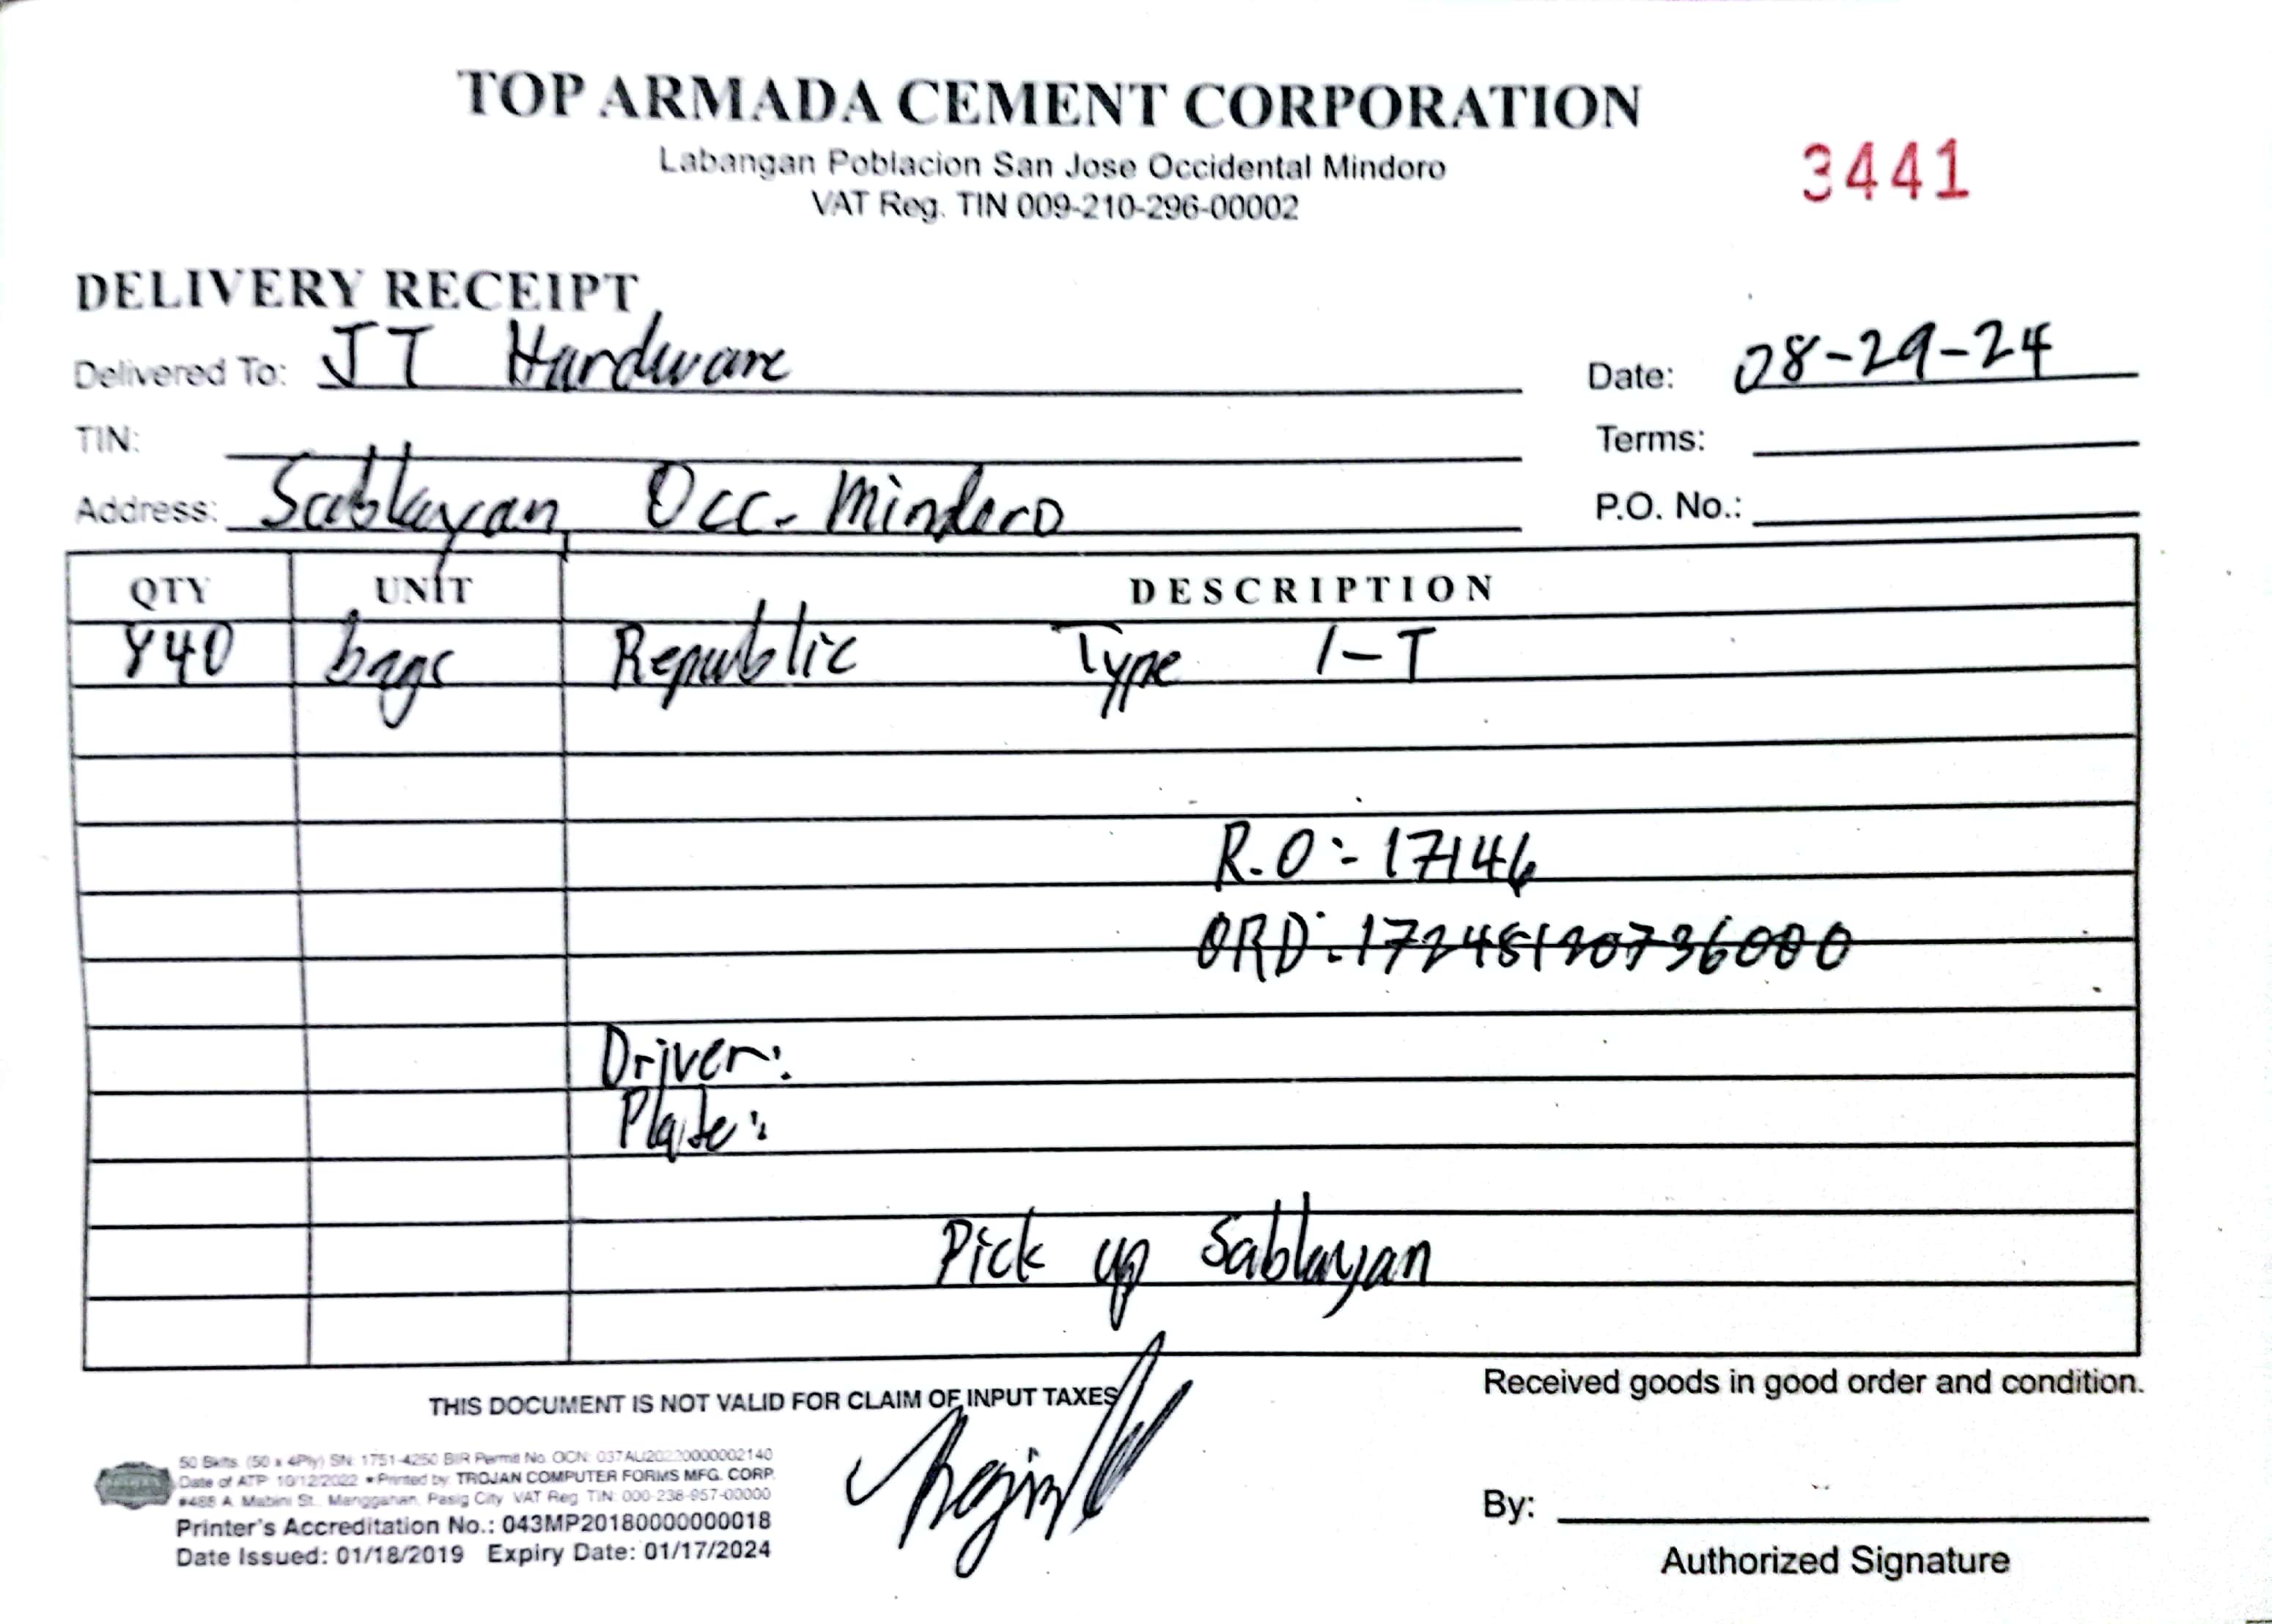 TOP ARMADA CEMENT CORPORATION
Labangan Poblacion San Jose Occidental Mindoro
VAT Reg. TIN 009-210-296-00002
3441
DELIVERY RECEIPT
Delivered To: JT Hardware
Date: 08-29-24
TIN:
Terms:
Address: Sablayan Occ. Mindoro
P.O. No.:
QTY UNIT DESCRIPTION
440 bags Republic Type 1-T
R.O:- 17146
ORD:-17248120736000
Driver:
Plate:
Pick up Sablayan
THIS DOCUMENT IS NOT VALID FOR CLAIM OF INPUT TAXES
Received goods in good order and condition.
50 Bklts. (50 x 4Ply) SN: 1751-4250 BIR Permit No. OCN: 037AU20220000002140
Date of ATP: 10/12/2022 • Printed by: TROJAN COMPUTER FORMS MFG. CORP.
#488 A. Mabini St., Manggahan, Pasig City VAT Reg. TIN: 000-238-957-00000
Printer's Accreditation No.: 043MP20180000000018
Date Issued: 01/18/2019 Expiry Date: 01/17/2024
By:
Authorized Signature